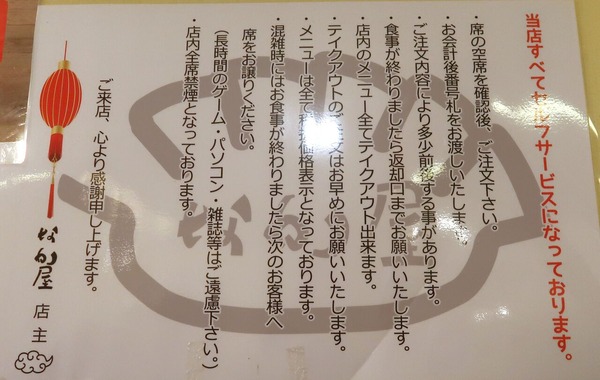 当店すべてセルフサービスになっております。
・席の空席を確認後、ご注文下さい。
・お会計後番号札をお渡しいたします。
・ご注文内容により多少前後する事があります。
・食事が終わりましたら返却口までお願いいたします。
・店内のメニュー全てテイクアウト出来ます。
・テイクアウトのご注文はお早めにお願いいたします。
・メニューは全て税込価格表示となっております。
・混雑時にはお食事が終わりましたら次のお客様へ
席をお譲りください。
（長時間のゲーム・パソコン・雑誌等はご遠慮下さい。）
・店内全席禁煙となっております。
ご来店、心より感謝申し上げます。
屋 店主